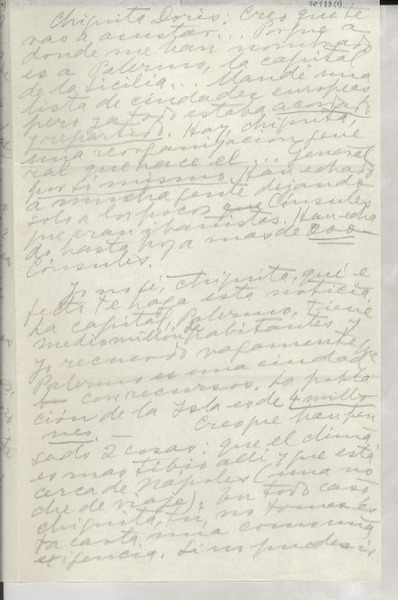 Chiquita Doris: Creo que te
vas a asustar... Porque a
donde me han nombrado
es a Palermo, la capital
de la Sicilia... Mandé una
lista de ciudades europeas,
pero ya todo estaba acordado
y repartido. Hay, chiquita,
una reorganización gene
ral que hace el... General
por sí mismo. Han echado
a mucha gente dejando
solo a los pocos que Cónsules
que eran ibañistas. Han echa
do hasta hoy a más de 200
Cónsules.
Yo no sé, chiquita, qué e
fecto te haga esta noticia.
La capital, Palermo, tiene
medio millón de habitantes, y
yo recuerdo vagamente que
Palermo es una ciudad
con recursos. La pobla
ción de la Isla es de 4 millo
nes
Creo que han pen
sado 2 cosas: que el clima
es más tibio allí y que está
cerca de Nápoles (una no
che de viaje). En todo caso,
chiquita, tú, no tomes es
ta carta como una
exigencia. Si no puedes ir